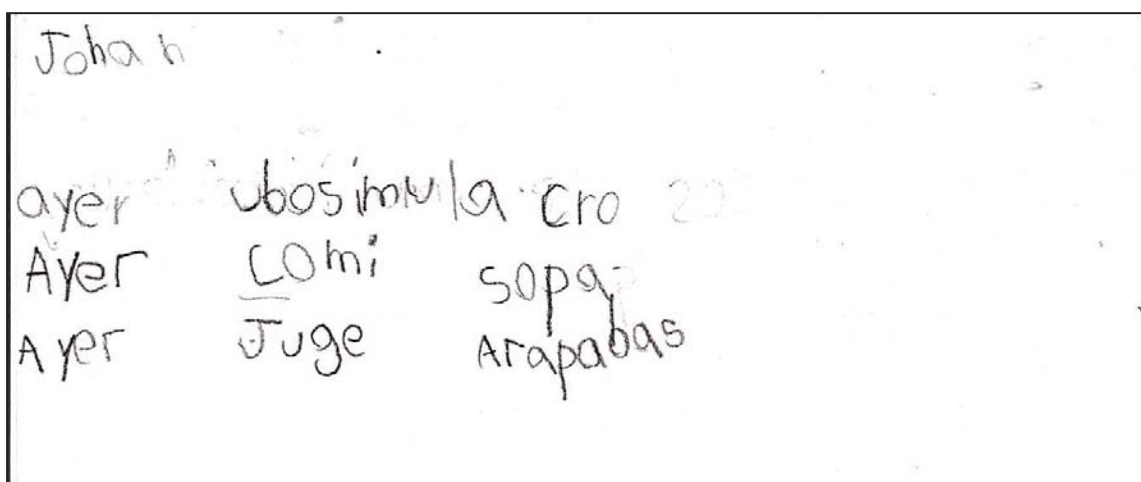 Johan
ayer ubosimula cro
Ayer comi sopa
Ayer Juge Arapabas